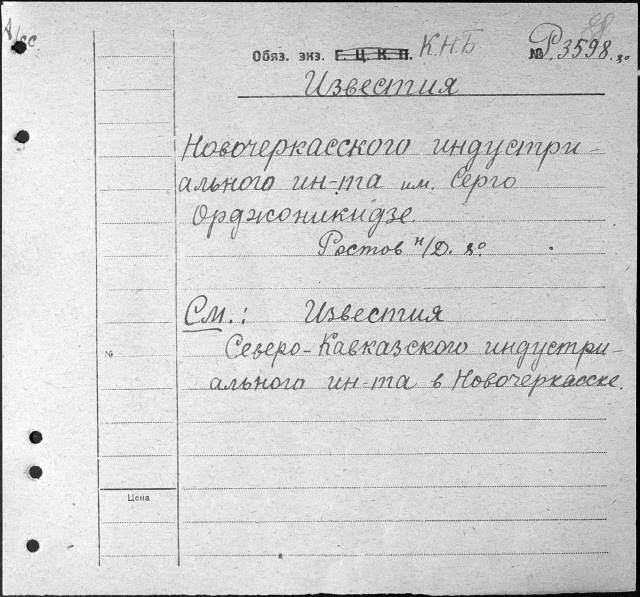 А/сс.
Обяз. экз. Г. Ц. К. П. КНБ № Р.3598. 8º
Известия
Новочеркасского индустри-
ального ин-та им. Серго
Орджоникидзе.
Ростов н/Д. 8º
См.: Известия
Северо-Кавказского индустри-
ального ин-та в Новочеркасске.
№
Цена